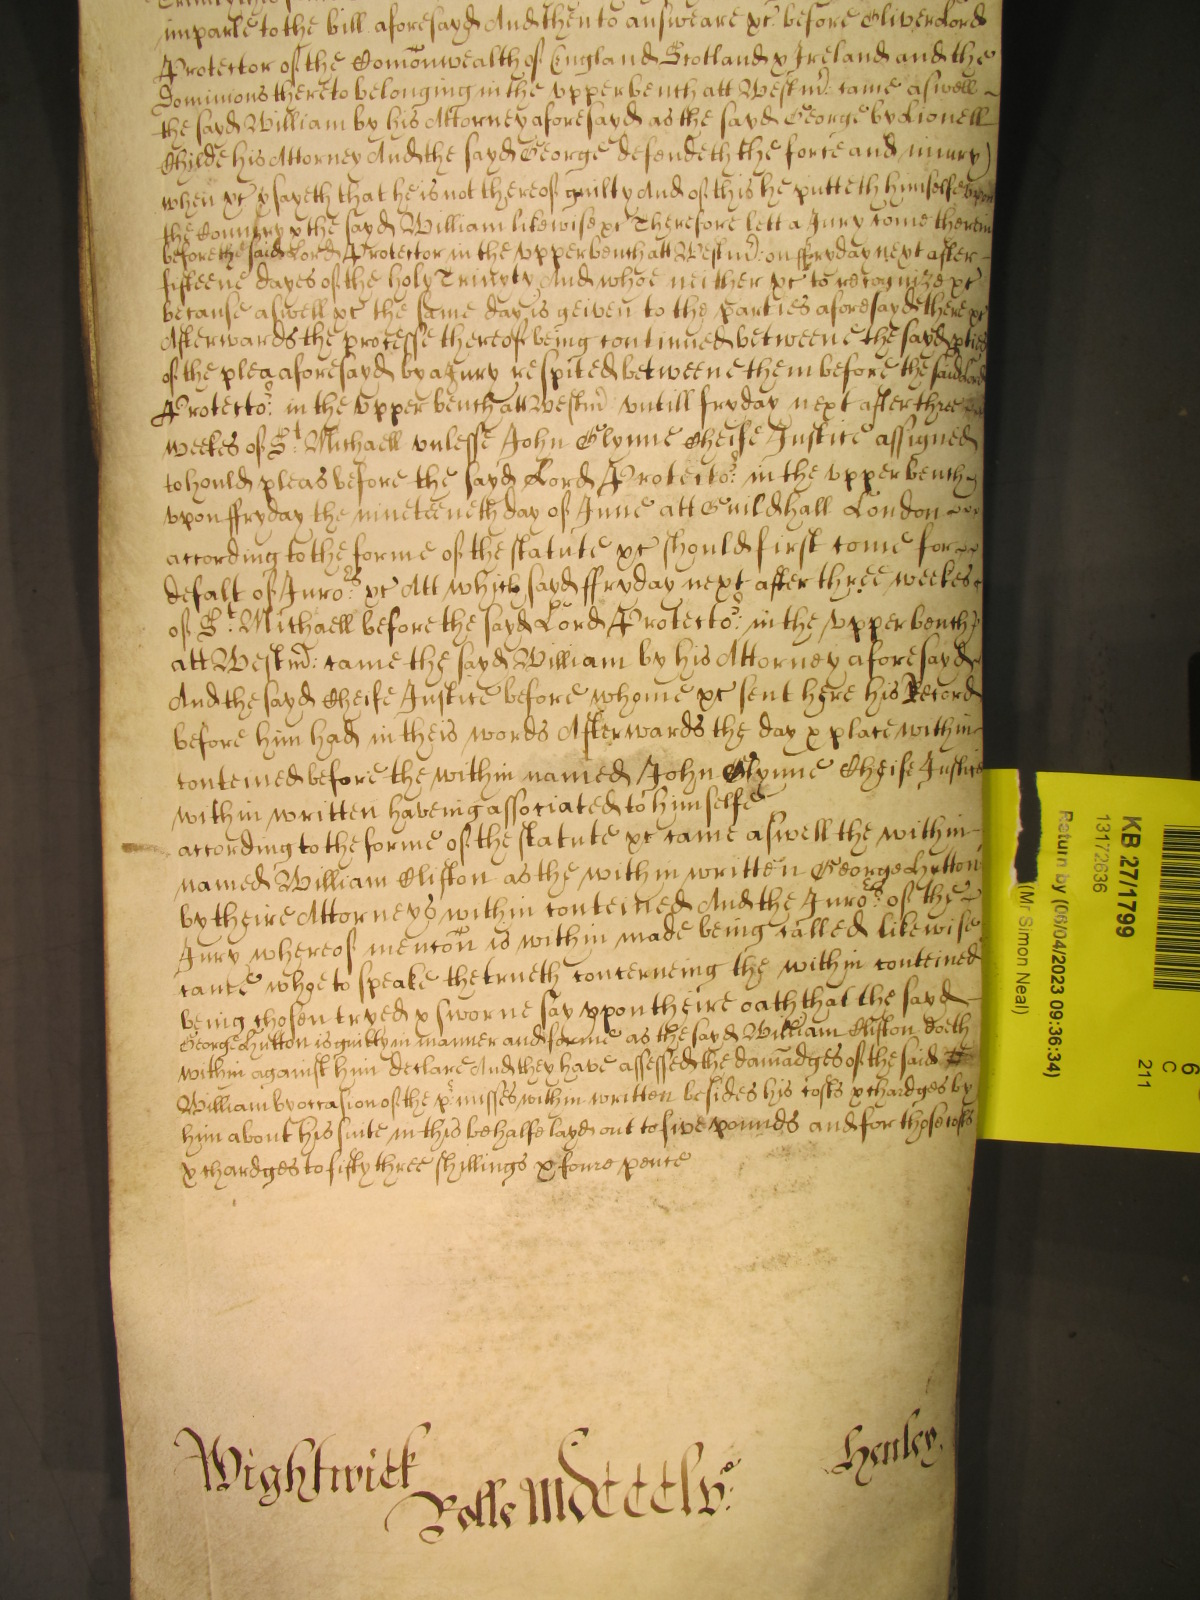 imparle to the bill aforesayd And then to answeare &c before Oliver Lord
Protector of the Comonwealth of England Scotland & Ireland and the
Dominions thereto belonging in the upper bench att Westmr: came aswell
the sayd William by his Attorney aforesayd as the sayd George by Lionell
Childe his Attorney And the sayd George defendeth the force and iniury
when &c & sayeth that he is not thereof guilty And of this he putteth himselfe upon
the Country & the sayd William likewise &c Therefore lett a Jury come therein
before the said Lord Protector in the upper bench att Westmr: on ffryday next after
fifteene dayes of the holy Trinyty And whoe neither &c to recognize &c
because aswell &c the same day is geiven to the parties aforesayd there &c
Afterwards the processe thereof being continued betweene the sayd pties
of the plea aforesayd by a Jury respited betweene them before the said Lord
Protector: in the Upper bench att Westmr: untill fryday next after three
weekes of St Michaell unlesse John Glynne Cheife Justice assigned
to hould pleas before the sayd Lord Protector: in the upper bench
upon ffryday the nineteenth day of June att Guildhall London
according to the forme of the statute &c should first come for
defalt of Jurors: &c Att which sayd ffryday next after three weekes
of St: Michaell before the sayd Lord Protector: in the upper bench
att Westmr: came the sayd William by his Attorney aforesayd
And the sayd Cheife Justice before whome &c sent here his Record
before him had in theis words Afterwards the day & place within
conteined before the within named John Glynne Cheife Justice
within written haveing associated to himselfe
according to the forme of the statute &c came aswell the within
named William Clifton as the within written George Hutton
by theire Attorneys within conteined And the Jurors: of the
Jury whereof mencon is within made being called likewise
came whoe to speake the trueth concerneing the within conteined
being chosen tryed & sworne say upon theire oath that the sayd
George Hutton is guilty in manner and forme as the sayd William Clifton doeth
within against him declare And they have assessed the damadges of the said
William by occasion of the pr:misses within written besides his costs & chardges by
him about his suite in this behalfe layd out to five pounds and for those costs
& chardges to fifty three shillings & foure pence
Wightwick
Henley.
Rolle MDCCClvo:
KB 27/1799
13172636
Return by (06/04/2023 09:36:34)
(Mr Simon Neal)
6
C
211